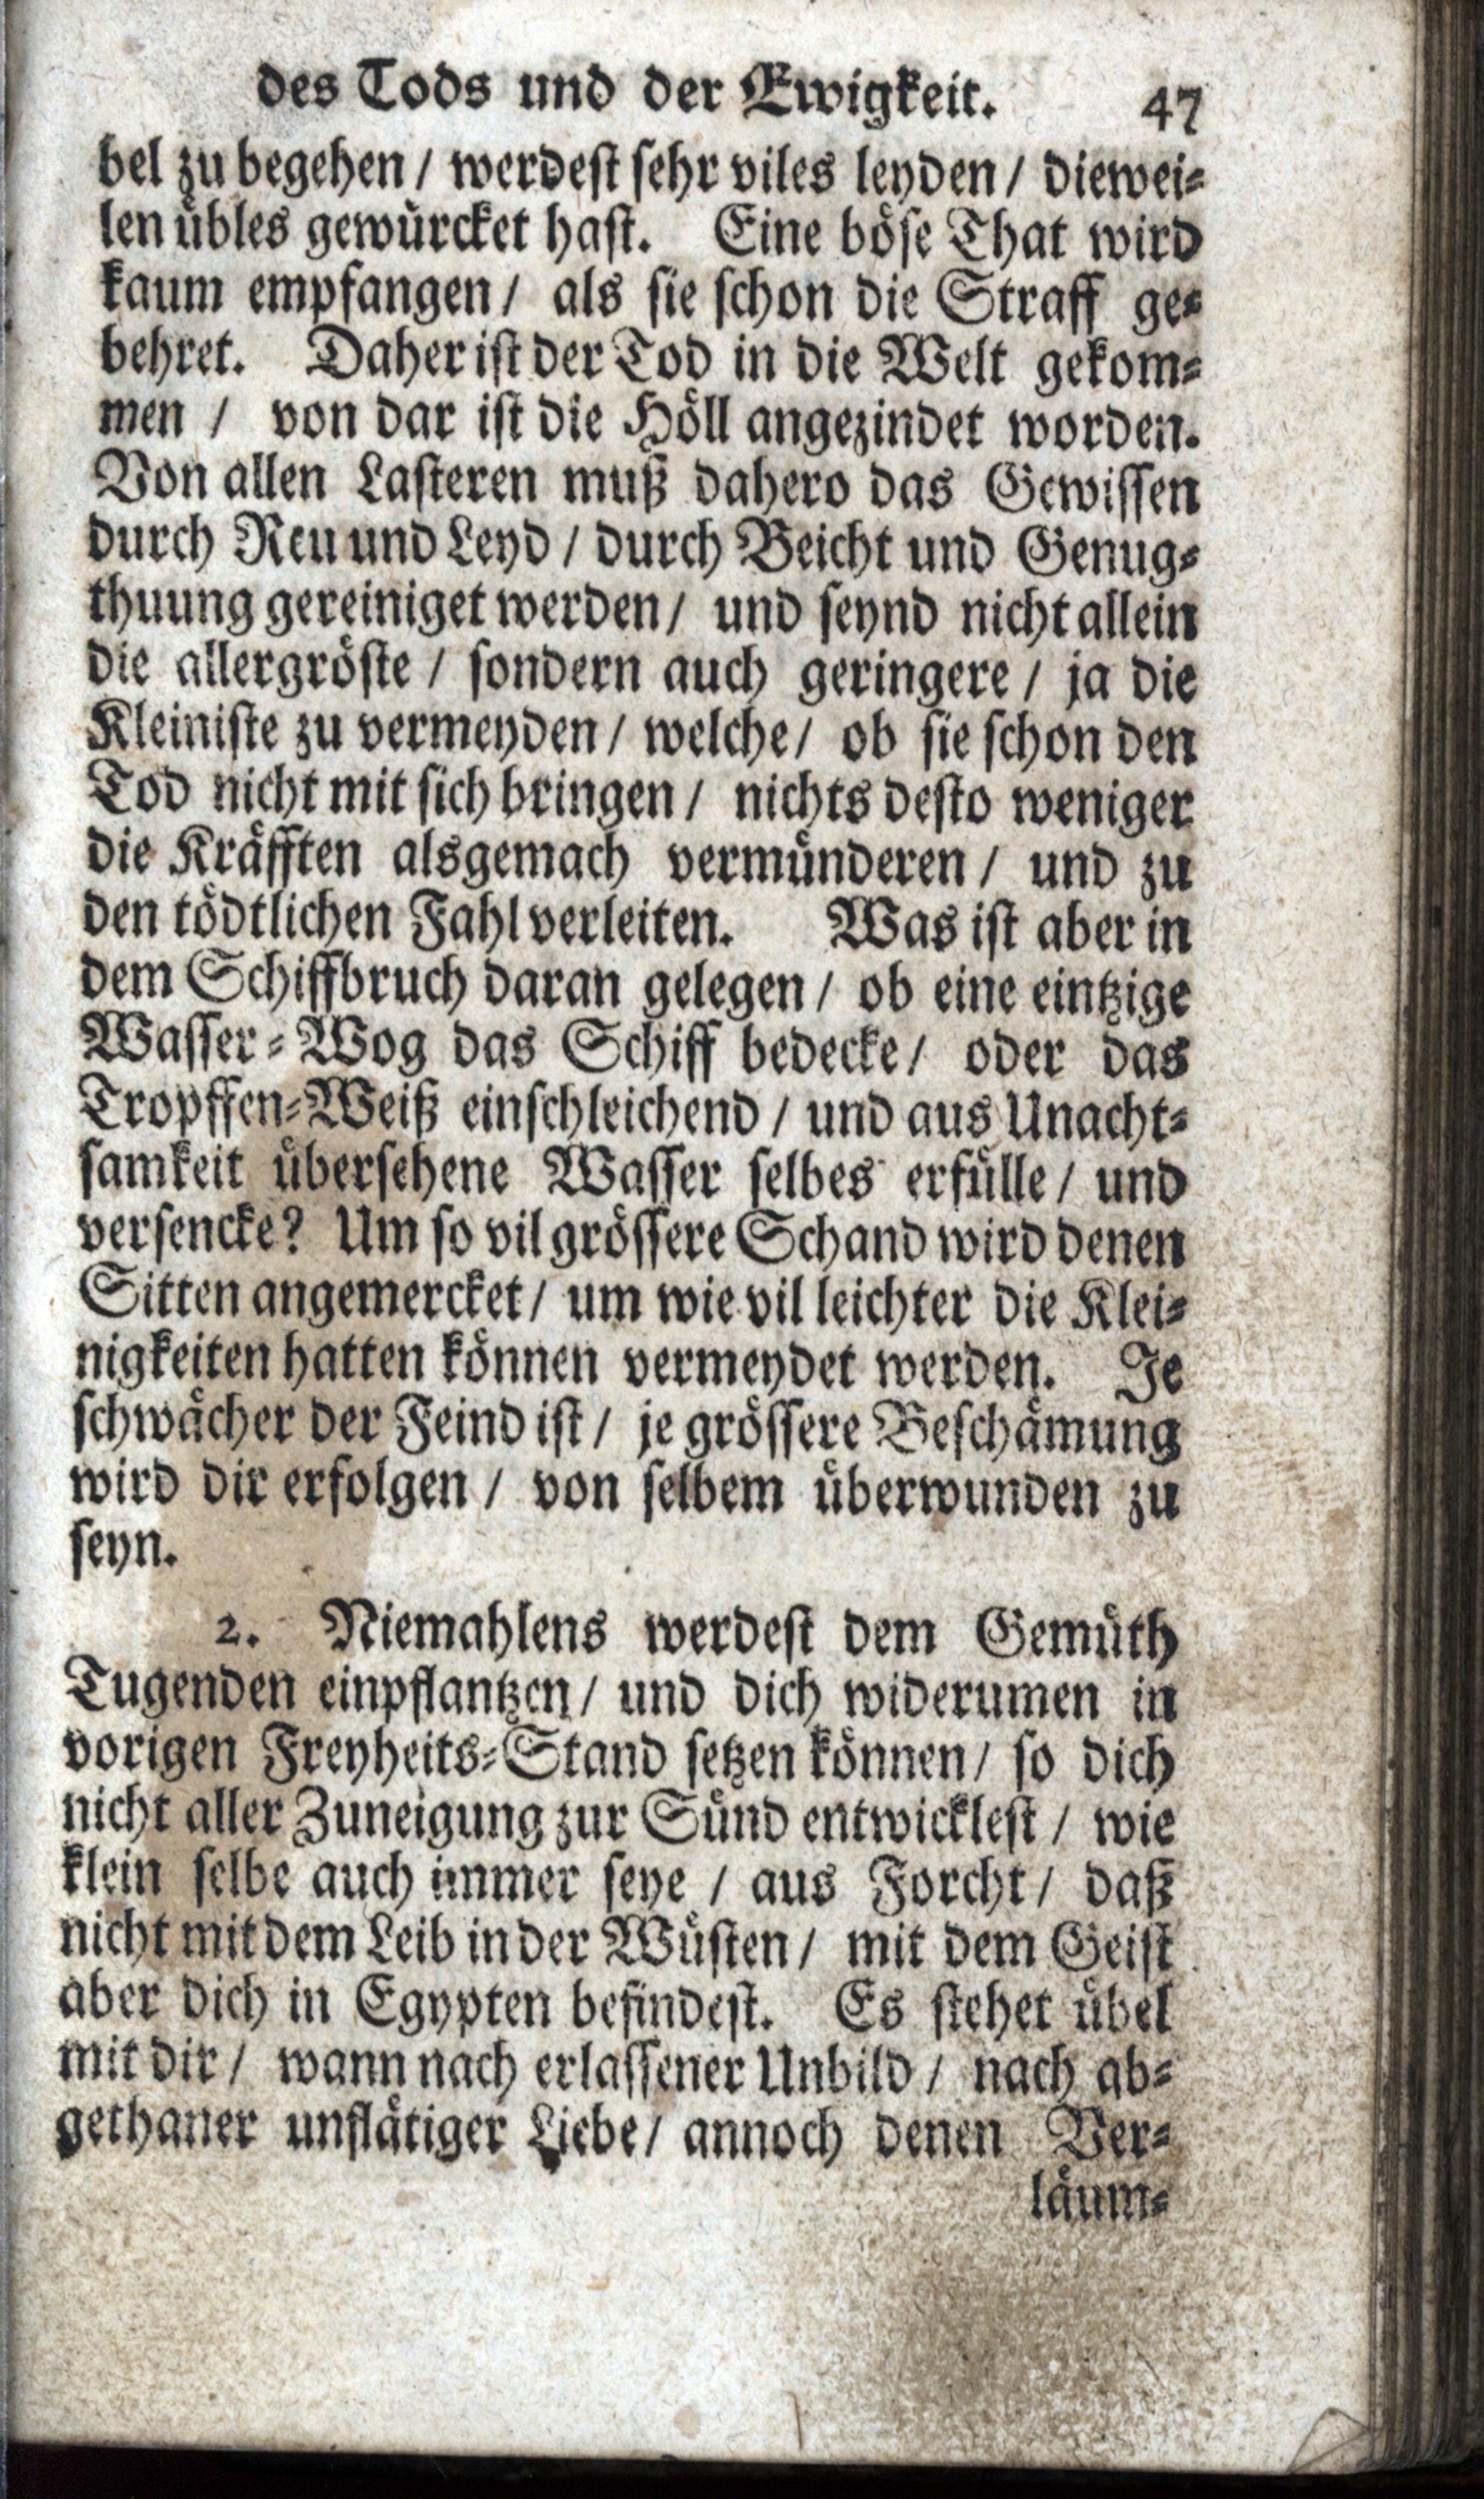 des Tods und der Ewigkeit. 47
bel zu begehen / werdest sehr viles leyden / diewei-
len übles gewürcket hast. Eine böse That wird
kaum empfangen / als sie schon die Straff ge-
behret. Daher ist der Tod in die Welt gekom-
men / von dar ist die Höll angezindet worden.
Von allen Lasteren muß dahero das Gewissen
durch Reu und Leyd / durch Beicht und Genug-
thuung gereiniget werden / und seynd nicht allein
die allergröste / sondern auch geringere / ja die
Kleiniste zu vermeyden / welche / ob sie schon den
Tod nicht mit sich bringen / nichts desto weniger
die Kräfften alsgemach vermünderen / und zu
den tödtlichen Fahl verleiten. Was ist aber in
dem Schiffbruch daran gelegen / ob eine eintzige
Wasser-Wog das Schiff bedecke / oder das
Tropffen-Weiß einschleichend / und aus Unacht-
samkeit übersehene Wasser selbes erfülle / und
versencke? Um so vil grössere Schand wird denen
Sitten angemercket / um wie vil leichter die Klei-
nigkeiten hatten können vermeydet werden. Je
schwächer der Feind ist / je grössere Beschämung
wird dir erfolgen / von selbem überwunden zu
seyn.
2. Niemahlens werdest dem Gemüth
Tugenden einpflantzen / und dich widerumen in
vorigen Freyheits-Stand setzen können / so dich
nicht aller Zuneigung zur Sünd entwicklest / wie
klein selbe auch immer seye / aus Forcht / daß
nicht mit dem Leib in der Wüsten / mit dem Geist
aber dich in Egypten befindest. Es stehet übel
mit dir / wann nach erlassener Unbild / nach ab-
gethaner unflätiger Liebe / annoch denen Ver-
läum-